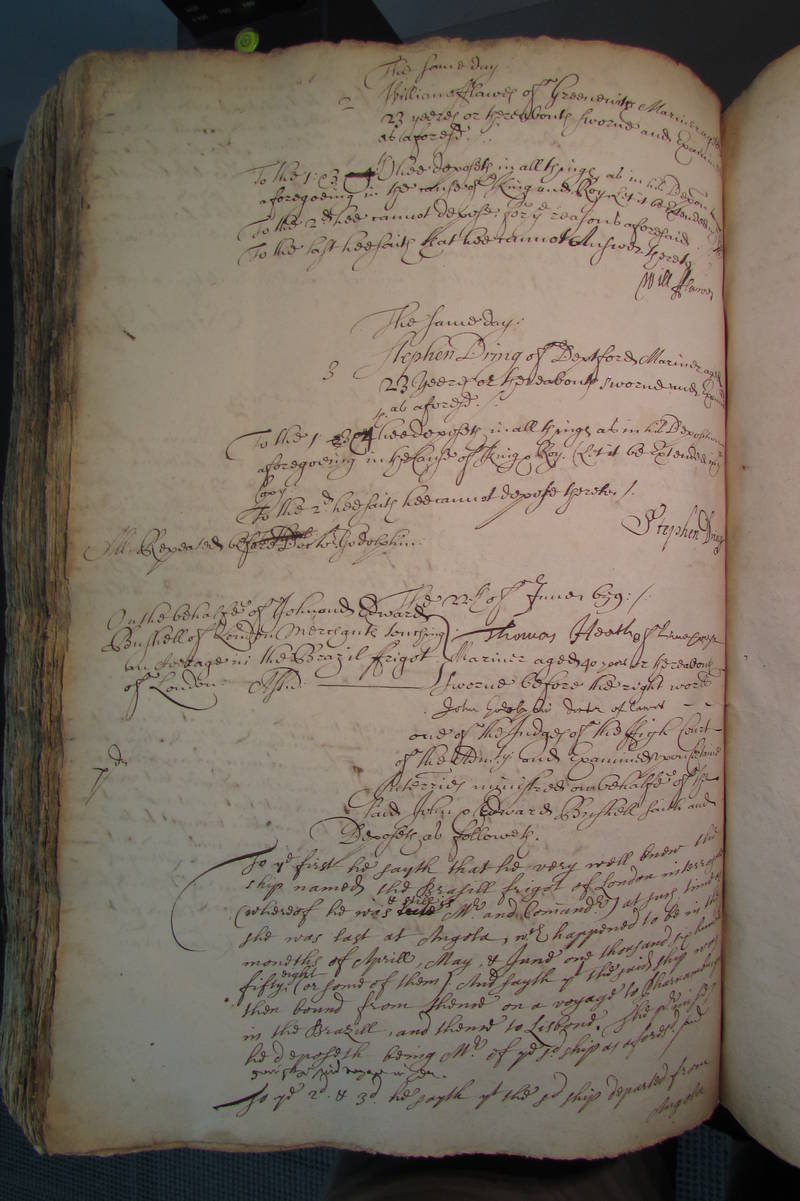 The same day
2 William fflawes of Greenewich Mariner aged
23 yeeres or thereabouts sworne and Examined
as aforesd.
To the 1. & 3 hee deposeth in all things as in his Deposn
aforegoeing in the cause of King and Roy. Let it be Extended
To the 2d hee cannot depose for ye reasons aforesaid
To the last hee saith that hee cannot Answer thereto
Will fflawes
The same day:
3 Stephen Dring of Deptford Mariner aged
23 yeeres or thereabouts sworne and Examined
as aforesd.
To the 1 hee deposeth in all things as in his Deposition
aforegoeing in the Cause of King & Roy. (Let it be Extended in ye
Copy
To the 2d hee saith hee cannot depose thereto /.
Stephen Dring
Repeated before Doctor Godolphin.
The 22th of June 1659: /.
On the behalfe of John and Edward
Bushell of London Merchants touching
an Average in the Brazil frigot
of London
Thomas Heath of
Mariner aged 40 yeares or thereabouts
sworne before the right worll
John Godolphin doctor of lawes
one of the Judges of the High Court
of the Admlty and Examined upon certaine
Interries ministred on behalfe of the
said John & Edward Bushell saith and
Deposeth as followeth.
To ye first he sayth that he very well knew the
ship named the Brasill frigot of London interrogate
(whereof he was & still is Mr. and Comandr.) at such time as
she was last at Angola, wch happened to be in the
moneths of Aprill, May, & June one thousand six hundred
fifty eight (or some of them) And sayth yt the said ship was
then bound from thence on a voyage to Pharnambuco
in the Brazill, and thence to Lisbone. The premisses
he deposeth being Mr. of ye sd ship as aforesd.
To ye 2d. & 3d. he sayth yt the sd ship departed from
Angola